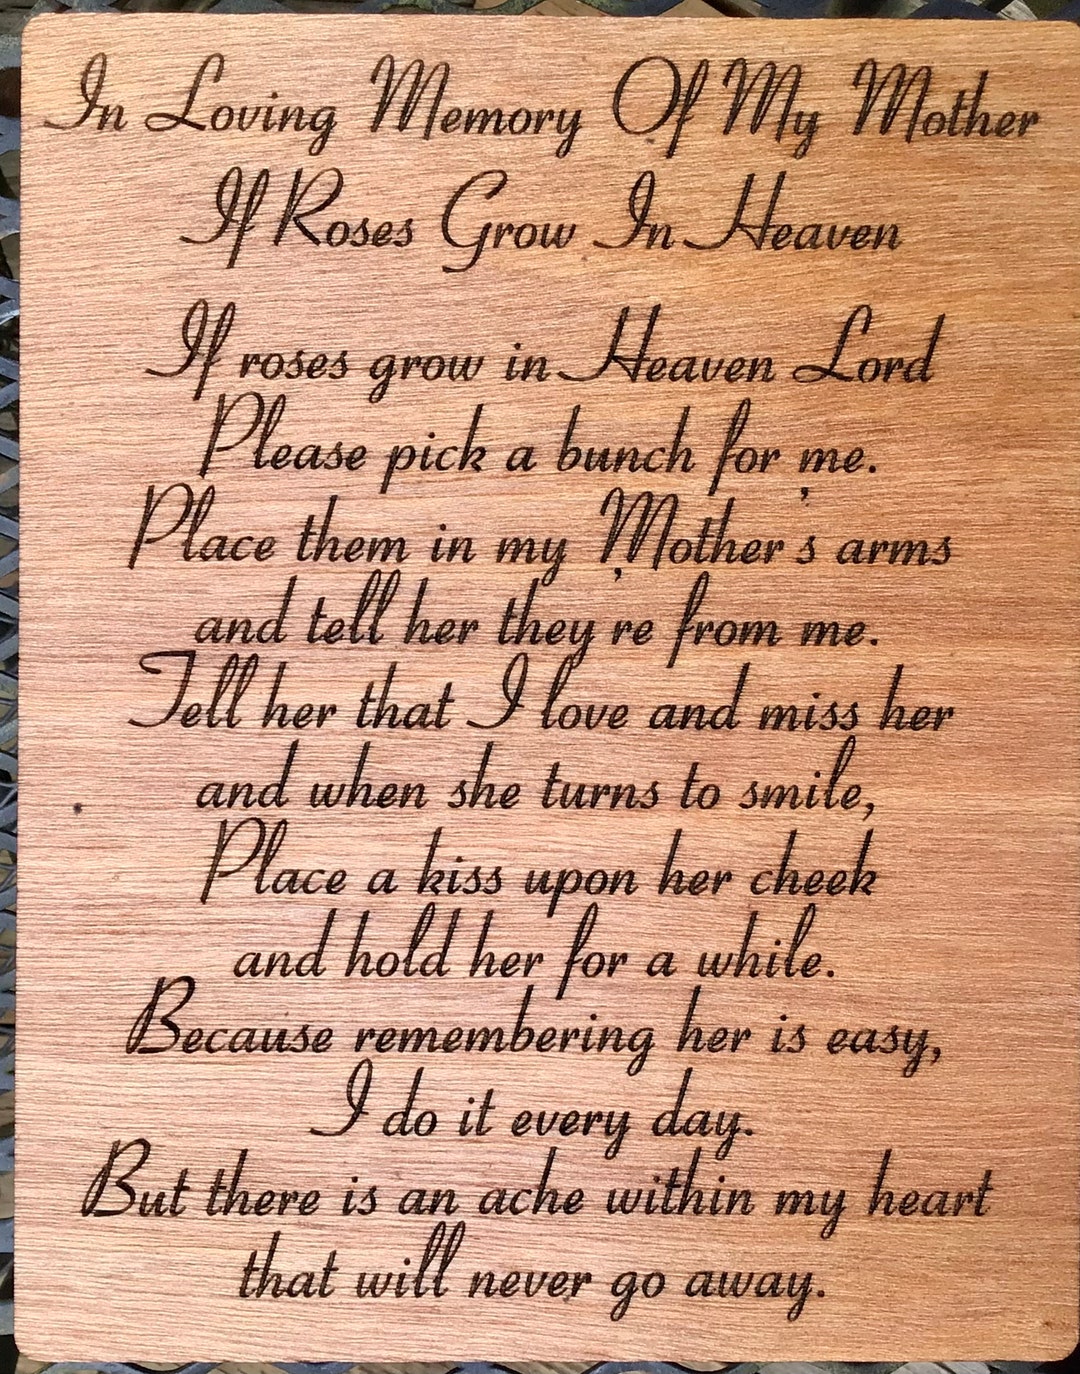 In Loving Memory Of My Mother
If Roses Grow In Heaven
If roses grow in Heaven Lord
Please pick a bunch for me.
Place them in my Mother's arms
and tell her they're from me.
Tell her that I love and miss her
and when she turns to smile,
Place a kiss upon her cheek
and hold her for a while.
Because remembering her is easy,
I do it every day.
But there is an ache within my heart
that will never go away.